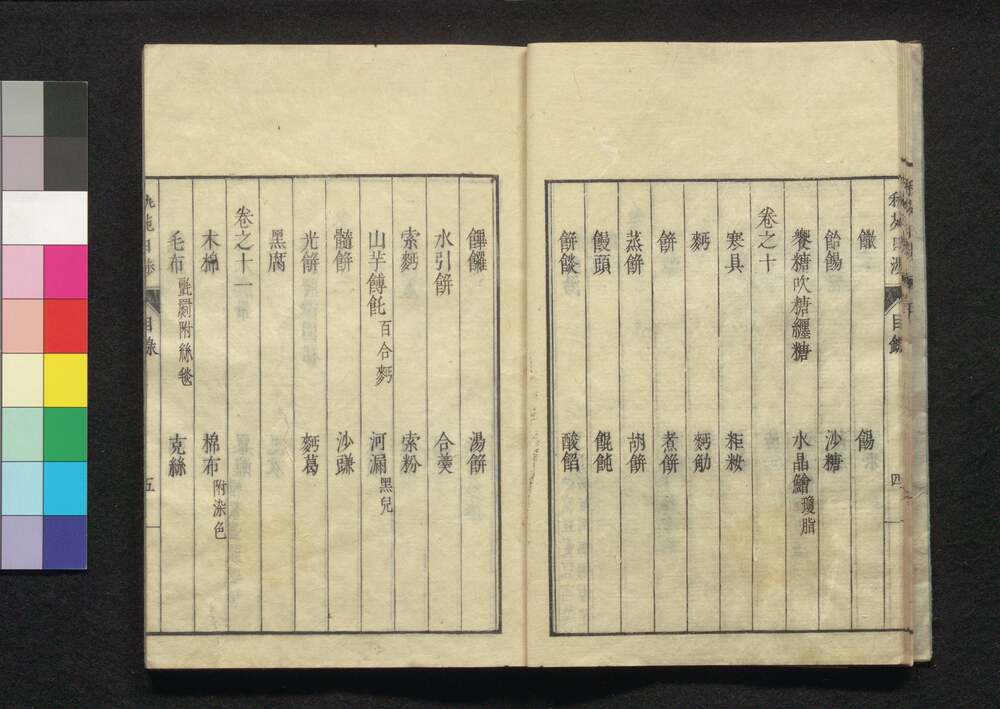 饊 餳
飴餳 沙糖
饗糖吹糖纏糖 水晶鱠瓊脂
卷之十
寒具 粔籹
麪 麪觔
餅 煮餅
蒸餅 胡餅
饅頭 餛飩
餅餤 酸餡
目錄 四
饆饠 湯餅
水引餅 合羹
索麪 索粉
山芋餺飥百合麪 河漏黑兒
髓餅 沙䭑
光餅 麪葛
黑腐
卷之十一
木棉 棉布附染色
毛布氈罽附絲毯 克絲
目錄 五